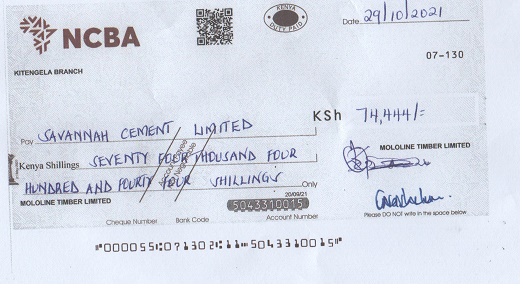 NCBA
KENYA
DUTY PAID
Date 29/10/2021
07-130
KITENGELA BRANCH
KSh 74,444/=
Pay SAVANNAH CEMENT LIMITED
MOLOLINE TIMBER LIMITED
Kenya Shillings SEVENTY FOUR THOUSAND FOUR
HUNDRED AND FOURTY FOUR SHILLINGS Only
MOLOLINE TIMBER LIMITED
20/09/21
5043310015
Cheque Number Bank Code Account Number
Please DO NOT write in the space below
"000055:071302:11-5043310015"